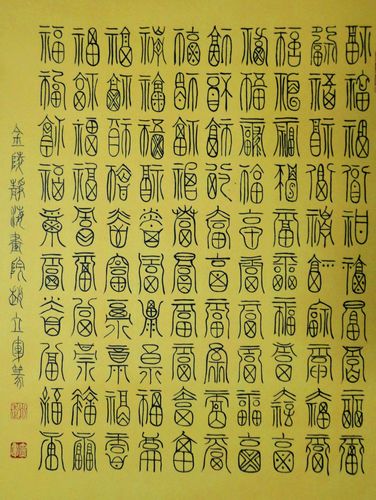 福福福福福福福福福福
福福福福福福福福福福
福福福福福福福福福福
福福福福福福福福福福
福福福福福福福福福福
福福福福福福福福福福
福福福福福福福福福福
福福福福福福福福福福
福福福福福福福福福福
福福福福福福福福福福
金陵靜海畫院趙立軍篆